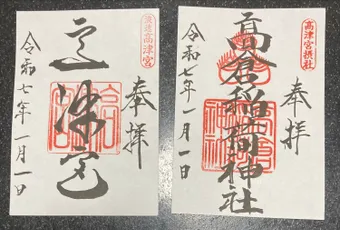 浪花高津宮
奉拝
高津宮
令和七年一月一日
高津宮摂社
奉拝
高倉稲荷神社
令和七年一月一日